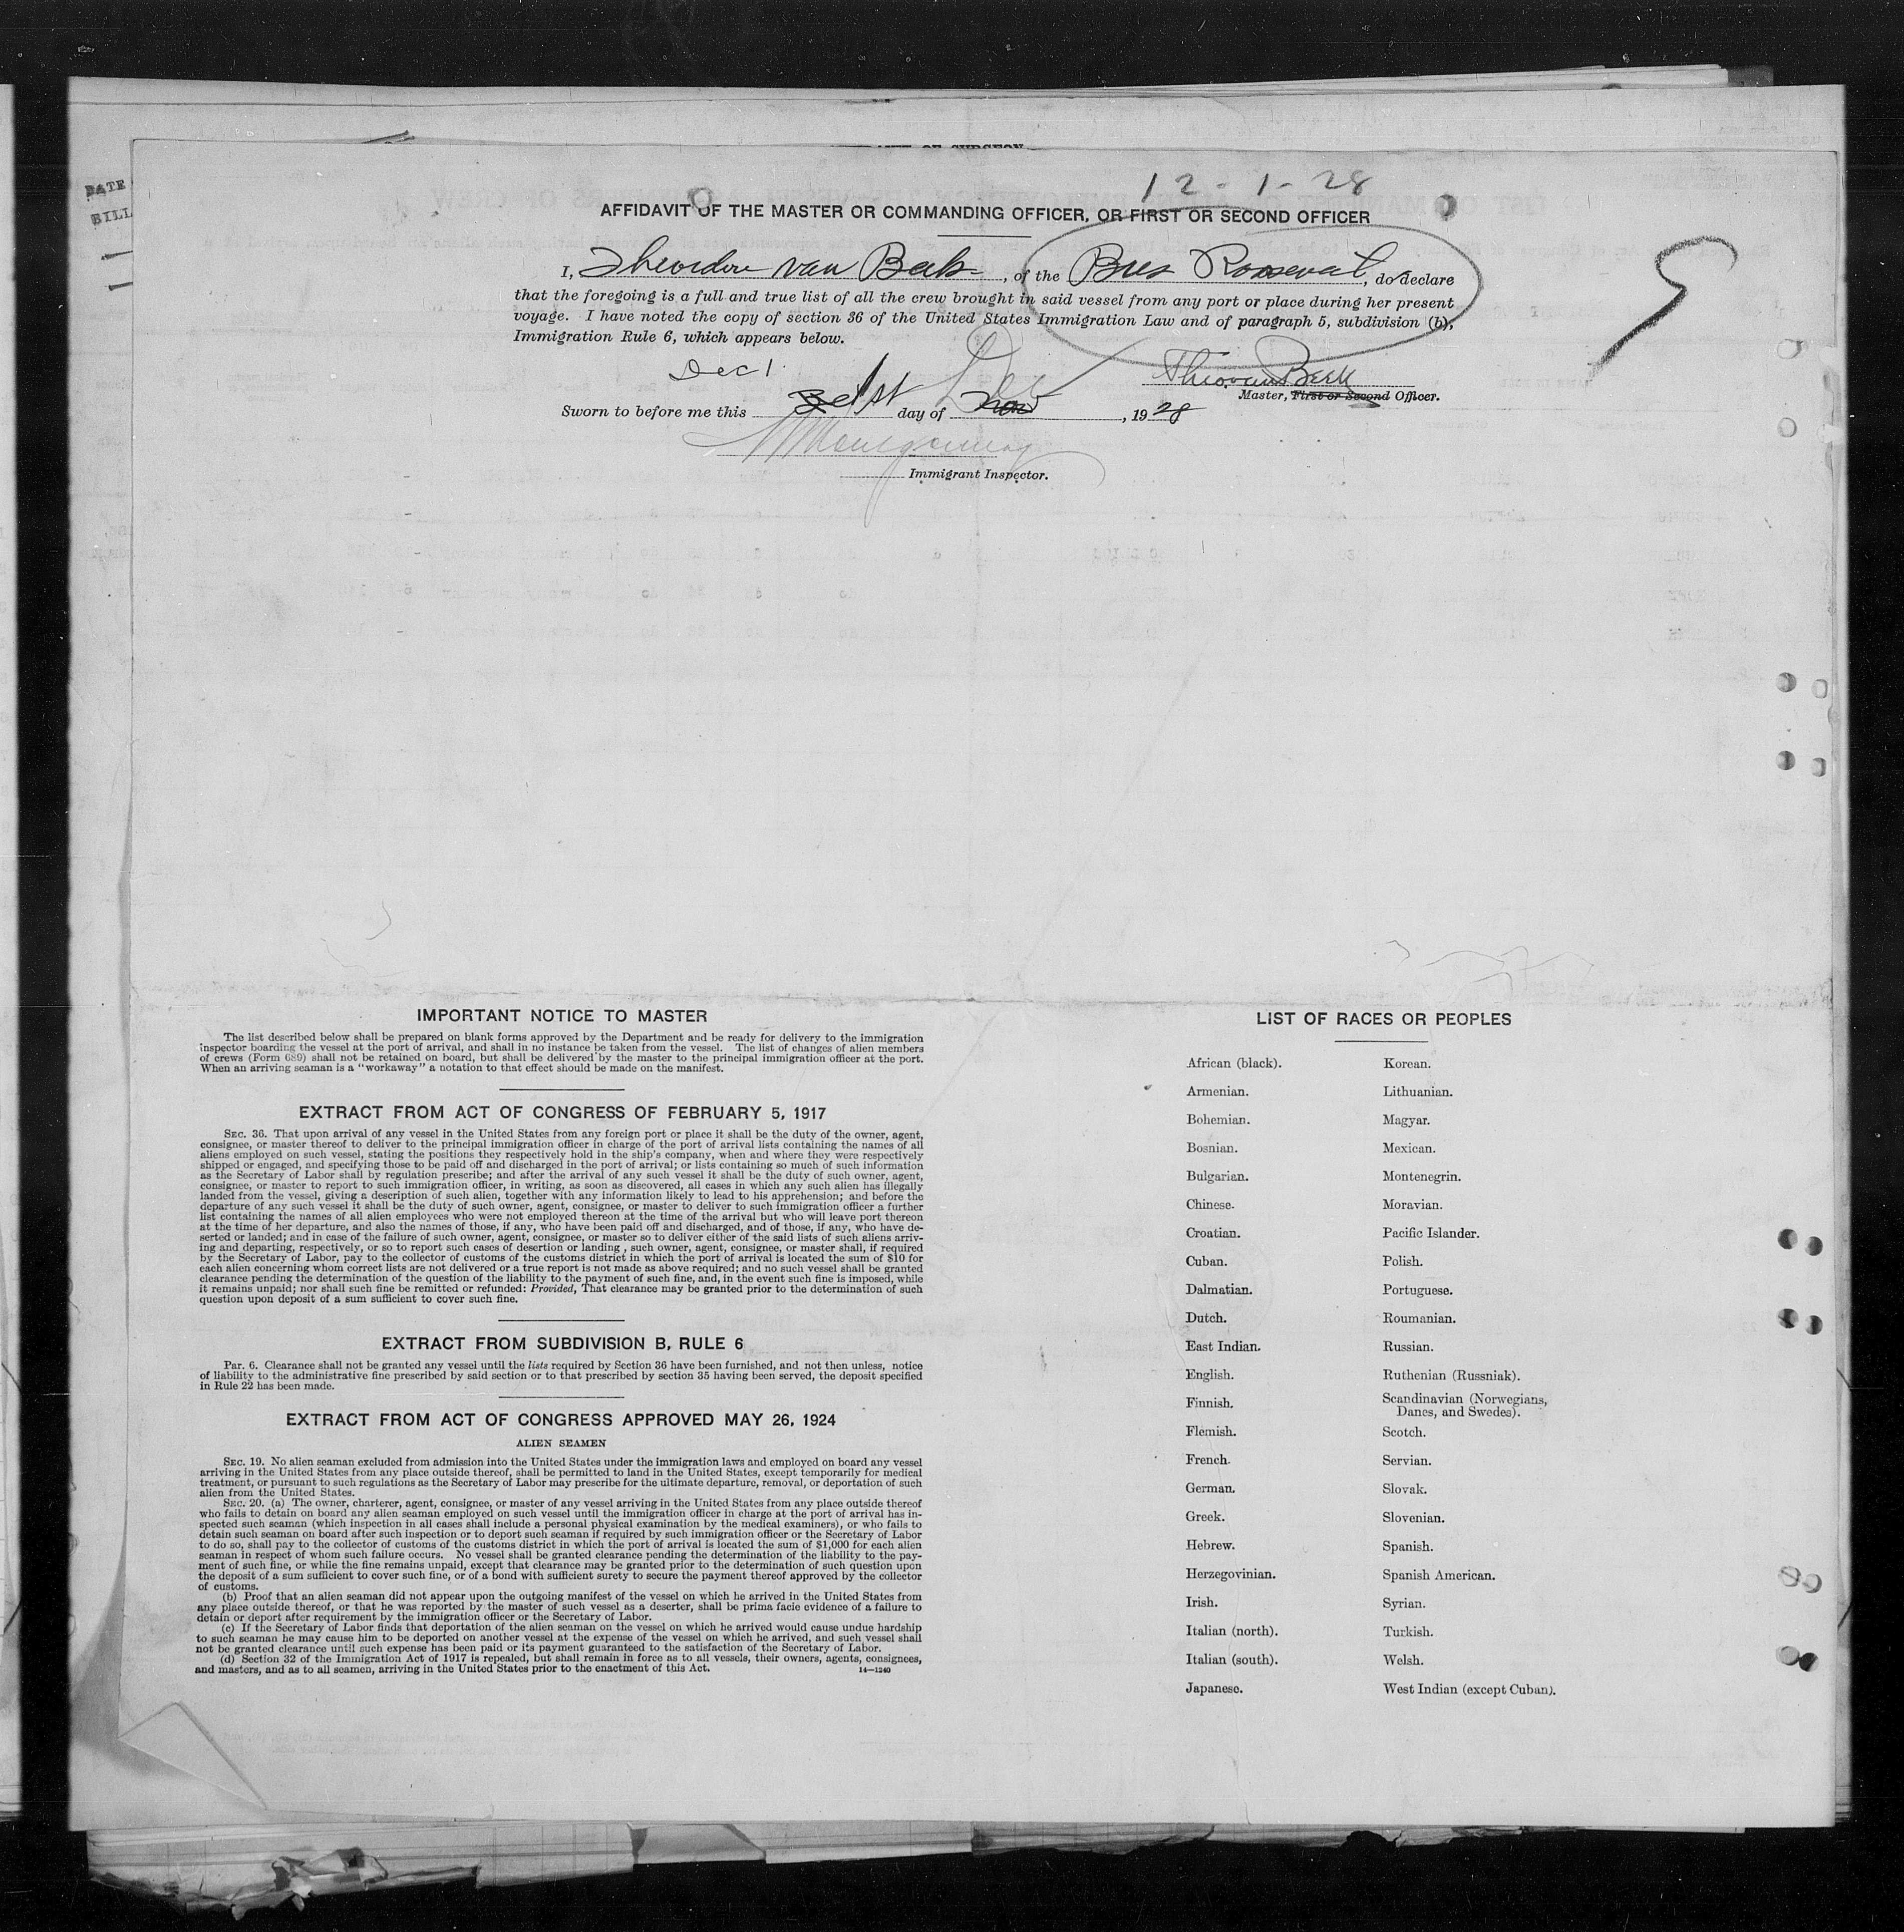 DATE
BILL
12-1-28
AFFIDAVIT OF THE MASTER OR COMMANDING OFFICER, OR FIRST OR SECOND OFFICER
I, Theodor van Beek, of the Pres Roosevelt, do declare
that the foregoing is a full and true list of all the crew brought in said vessel from any port or place during her present
voyage. I have noted the copy of section 36 of the United States Immigration Law and of paragraph 5, subdivision (b),
Immigration Rule 6, which appears below.
Dec 1
Theo. van Beek
Master, First or Second Officer.
Sworn to before me this 1st day of Dec, 1928
Montgomery
Immigrant Inspector.
IMPORTANT NOTICE TO MASTER
The list described below shall be prepared on blank forms approved by the Department and be ready for delivery to the immigration
inspector boarding the vessel at the port of arrival, and shall in no instance be taken from the vessel. The list of changes of alien members
of crews (Form 689) shall not be retained on board, but shall be delivered by the master to the principal immigration officer at the port.
When an arriving seaman is a "workaway" a notation to that effect should be made on the manifest.
EXTRACT FROM ACT OF CONGRESS OF FEBRUARY 5, 1917
SEC. 36. That upon arrival of any vessel in the United States from any foreign port or place it shall be the duty of the owner, agent,
consignee, or master thereof to deliver to the principal immigration officer in charge of the port of arrival lists containing the names of all
aliens employed on such vessel, stating the positions they respectively hold in the ship's company, when and where they were respectively
shipped or engaged, and specifying those to be paid off and discharged in the port of arrival; or lists containing so much of such information
as the Secretary of Labor shall by regulation prescribe; and after the arrival of any such vessel it shall be the duty of such owner, agent,
consignee, or master to report to such immigration officer, in writing, as soon as discovered, all cases in which any such alien has illegally
landed from the vessel, giving a description of such alien, together with any information likely to lead to his apprehension; and before the
departure of any such vessel it shall be the duty of such owner, agent, consignee, or master to deliver to such immigration officer a further
list containing the names of all alien employees who were not employed thereon at the time of the arrival but who will leave port thereon
at the time of her departure, and also the names of those, if any, who have been paid off and discharged, and of those, if any, who have de-
serted or landed; and in case of the failure of such owner, agent, consignee, or master so to deliver either of the said lists of such aliens arriv-
ing and departing, respectively, or so to report such cases of desertion or landing, such owner, agent, consignee, or master shall, if required
by the Secretary of Labor, pay to the collector of customs of the customs district in which the port of arrival is located the sum of $10 for
each alien concerning whom correct lists are not delivered or a true report is not made as above required; and no such vessel shall be granted
clearance pending the determination of the question of the liability to the payment of such fine, and, in the event such fine is imposed, while
it remains unpaid; nor shall such fine be remitted or refunded: Provided, That clearance may be granted prior to the determination of such
question upon deposit of a sum sufficient to cover such fine.
EXTRACT FROM SUBDIVISION B, RULE 6
Par. 6. Clearance shall not be granted any vessel until the lists required by Section 36 have been furnished, and not then unless, notice
of liability to the administrative fine prescribed by said section or to that prescribed by section 35 having been served, the deposit specified
in Rule 22 has been made.
EXTRACT FROM ACT OF CONGRESS APPROVED MAY 26, 1924
ALIEN SEAMEN
SEC. 19. No alien seaman excluded from admission into the United States under the immigration laws and employed on board any vessel
arriving in the United States from any place outside thereof, shall be permitted to land in the United States, except temporarily for medical
treatment, or pursuant to such regulations as the Secretary of Labor may prescribe for the ultimate departure, removal, or deportation of such
alien from the United States.
SEC. 20. (a) The owner, charterer, agent, consignee, or master of any vessel arriving in the United States from any place outside thereof
who fails to detain on board any alien seaman employed on such vessel until the immigration officer in charge at the port of arrival has in-
spected such seaman (which inspection in all cases shall include a personal physical examination by the medical examiners), or who fails to
detain such seaman on board after such inspection or to deport such seaman if required by such immigration officer or the Secretary of Labor
to do so, shall pay to the collector of customs of the customs district in which the port of arrival is located the sum of $1,000 for each alien
seaman in respect of whom such failure occurs. No vessel shall be granted clearance pending the determination of the liability to the pay-
ment of such fine, or while the fine remains unpaid, except that clearance may be granted prior to the determination of such question upon
the deposit of a sum sufficient to cover such fine, or of a bond with sufficient surety to secure the payment thereof approved by the collector
of customs.
(b) Proof that an alien seaman did not appear upon the outgoing manifest of the vessel on which he arrived in the United States from
any place outside thereof, or that he was reported by the master of such vessel as a deserter, shall be prima facie evidence of a failure to
detain or deport after requirement by the immigration officer or the Secretary of Labor.
(c) If the Secretary of Labor finds that deportation of the alien seaman on the vessel on which he arrived would cause undue hardship
to such seaman he may cause him to be deported on another vessel at the expense of the vessel on which he arrived, and such vessel shall
not be granted clearance until such expense has been paid or its payment guaranteed to the satisfaction of the Secretary of Labor.
(d) Section 32 of the Immigration Act of 1917 is repealed, but shall remain in force as to all vessels, their owners, agents, consignees,
and masters, and as to all seamen, arriving in the United States prior to the enactment of this Act.
14—1240
LIST OF RACES OR PEOPLES
African (black).
Armenian.
Bohemian.
Bosnian.
Bulgarian.
Chinese.
Croatian.
Cuban.
Dalmatian.
Dutch.
East Indian.
English.
Finnish.
Flemish.
French.
German.
Greek.
Hebrew.
Herzegovinian.
Irish.
Italian (north).
Italian (south).
Japanese.
Korean.
Lithuanian.
Magyar.
Mexican.
Montenegrin.
Moravian.
Pacific Islander.
Polish.
Portuguese.
Roumanian.
Russian.
Ruthenian (Russniak).
Scandinavian (Norwegians,
Danes, and Swedes).
Scotch.
Servian.
Slovak.
Slovenian.
Spanish.
Spanish American.
Syrian.
Turkish.
Welsh.
West Indian (except Cuban).